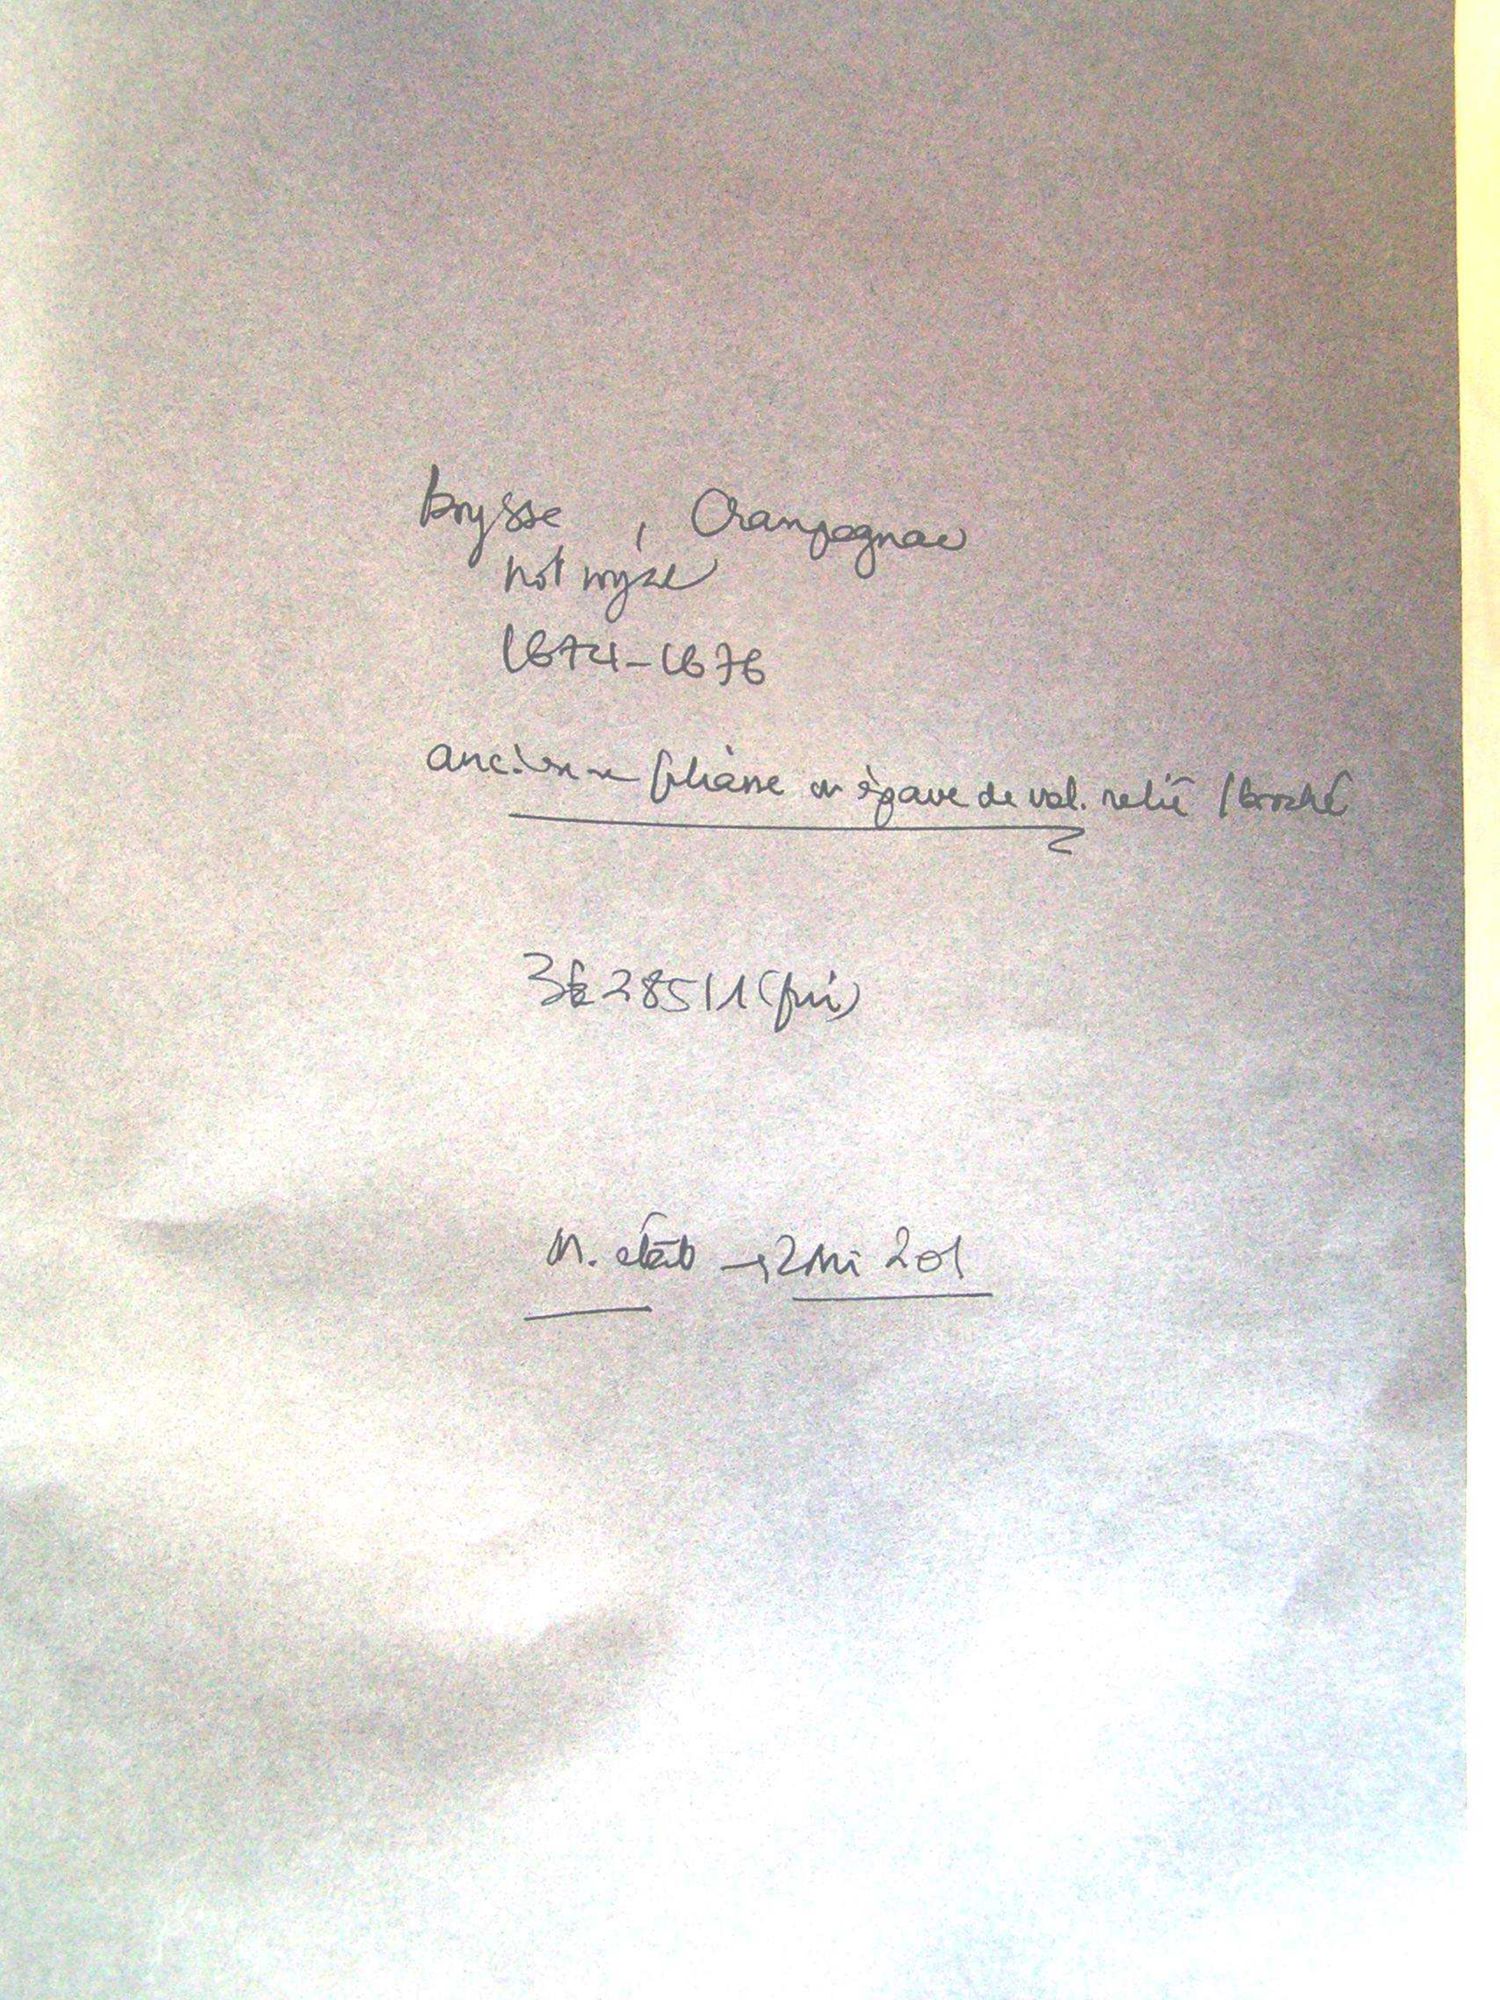 boysse , Champagnac
not royal
1674-1676
ancienne filiasse ou épave de vol. relié / broché
3E 285/1 (fin)
M. état → 2Mi 201